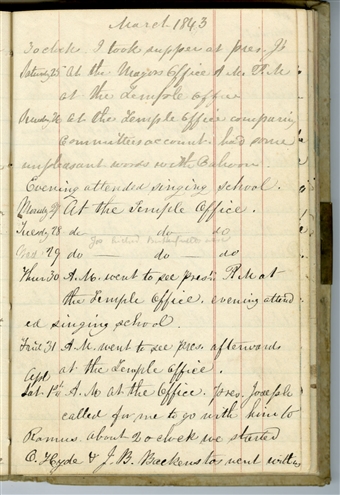 March 1843
3 oclok. I took supper at pres. Js
Saturday 25 At the Mayors Office A.M. P.M
at the Temple Office
Sunday 26 At the Temple Office comparing
Committees account. had some
unpleasant words with Cahoon.
Evening attended singing school.
Monday 27 At the Temple Office.
Tuesday 28 do do do
Wed. 29 do do do
Thur 30 A.M. went to see Prest. P.M at
the Temple Office. evening attend
ed singing school.
Frid. 31 A.M. went to see pres. afterwards
at the Temple Office.
Apl
Sat. 1st A.M at the Office. Pres. Joseph
called for me to go with him to
Ramus. about 2 oclock we started
O. Hyde & J. B. Backenstos went with us